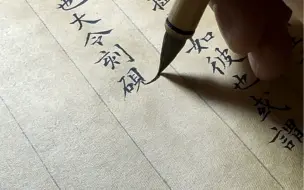 如彼也或謂
也大令刻硯